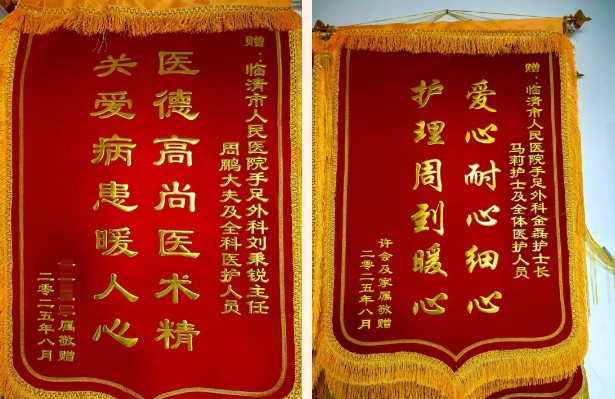 赠：临济市人民医院手足外科刘秉锐主任
周鹏大夫及全科医护人员
医德高尚医术精
关爱病患暖人心
属敬赠
二零二五年八月
赠：临济市人民医院手足外科金磊护士长
马莉护士及全体医护人员
爱心耐心细心
护理周到暖心
许会及家属敬赠
二零二五年八月